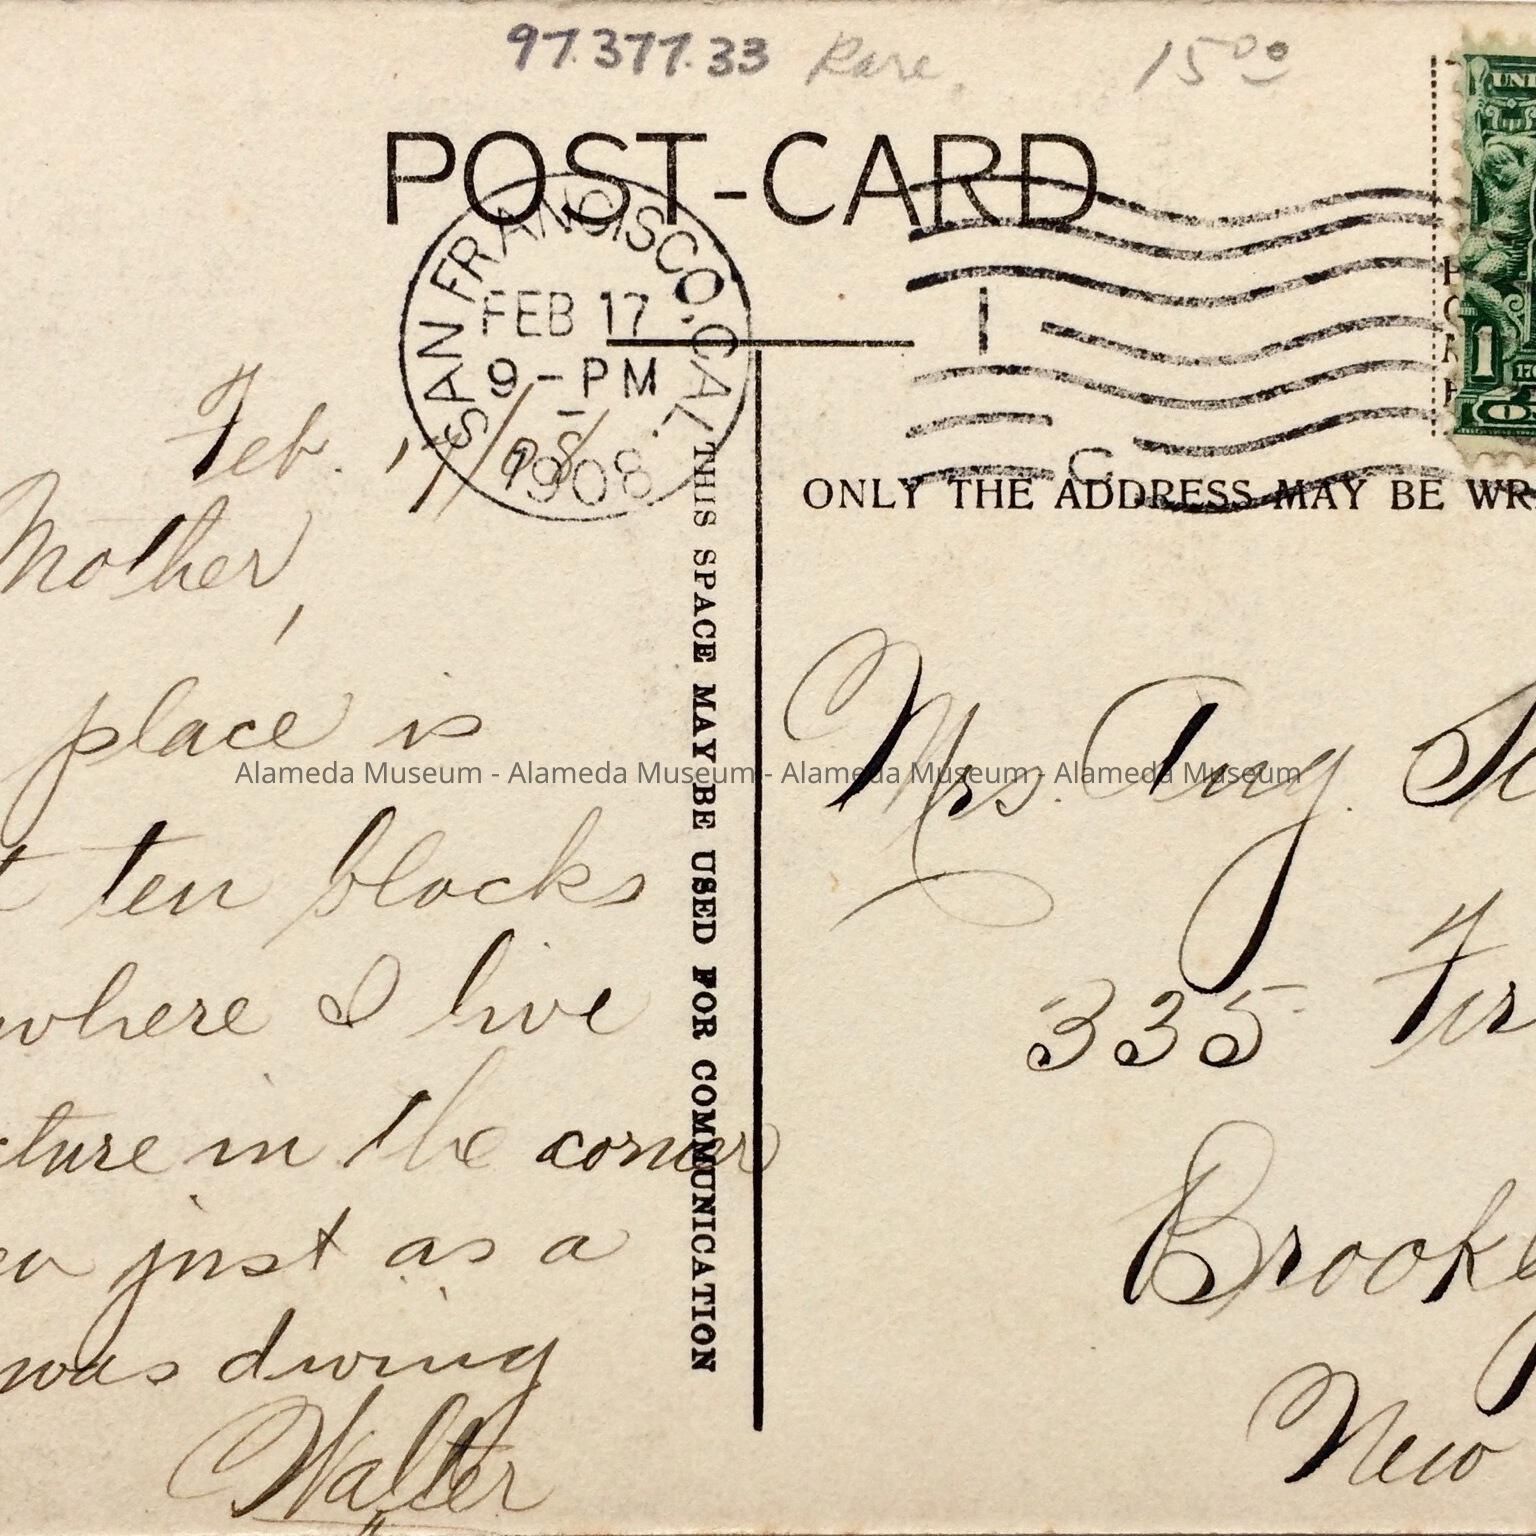 97.377.33 Rare. 15⁰⁰
POST-CARD
SAN FRANCISCO, CAL.
FEB 17
9-PM
1908
UNI
1
170
Feb. 17/08
Mother,
place is
ten blocks
where I live
cture in the corner
just as a
was diving
Walter
THIS SPACE MAY BE USED FOR COMMUNICATION
ONLY THE ADDRESS MAY BE WR
Mrs. Aug. Sc
335 Fir
Brookl
New
Alameda Museum - Alameda Museum - Alameda Museum - Alameda Museum